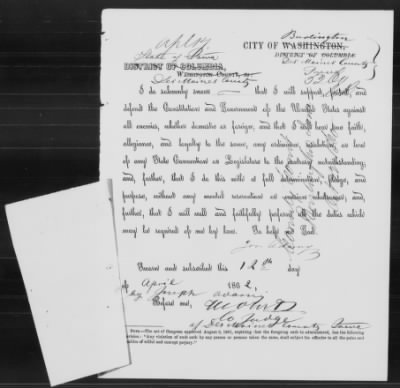 Burlington
CITY OF WASHINGTON,
DISTRICT OF COLUMBIA
Des Moines County
Iowa
State of Iowa
DISTRICT OF COLUMBIA,
WASHINGTON COUNTY,
Des Moines County
I do solemnly swear that I will support, protect, and
defend the Constitution and Government of the United States against
all enemies, whether domestic or foreign, and that I will bear true faith,
allegiance, and loyalty to the same, any ordinance, resolution, or law
of any State Convention or Legislature to the contrary notwithstanding;
and, further, that I do this with a full determination, pledge, and
purpose, without any mental reservation or evasion whatsoever; and,
further, that I will well and faithfully perform all the duties which
may be required of me by law. So help me God.
Sworn and subscribed this 12th day
of April 1862
by Joseph Adams
Before me,
Co Judge
of Des Moines County Iowa
NOTE.—The act of Congress approved August 6, 1861, requiring that the foregoing oath be administered, has the following
provision: "Any violation of such oath by any person or persons taken the same, shall subject the offender to all the pains and
penalties of wilful and corrupt perjury."